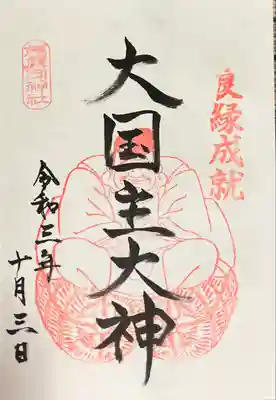 良縁成就
大国主大神
令和三年
十月三日